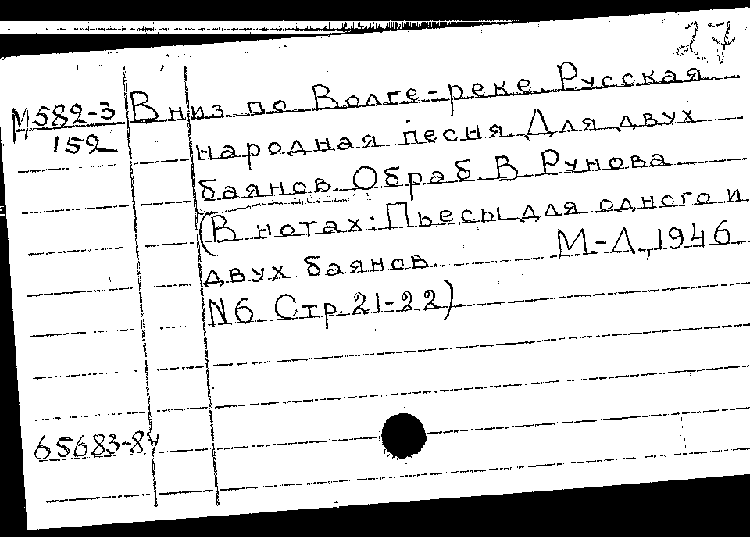 27
М582-3 Вниз по Волге-реке. Русская
159 народная песня. Для двух
баянов. Обраб. В. Рунова.
(В нотах: Пьесы для одного и
двух баянов. М-Л., 1946
N6 Стр. 21-22)
65683-84